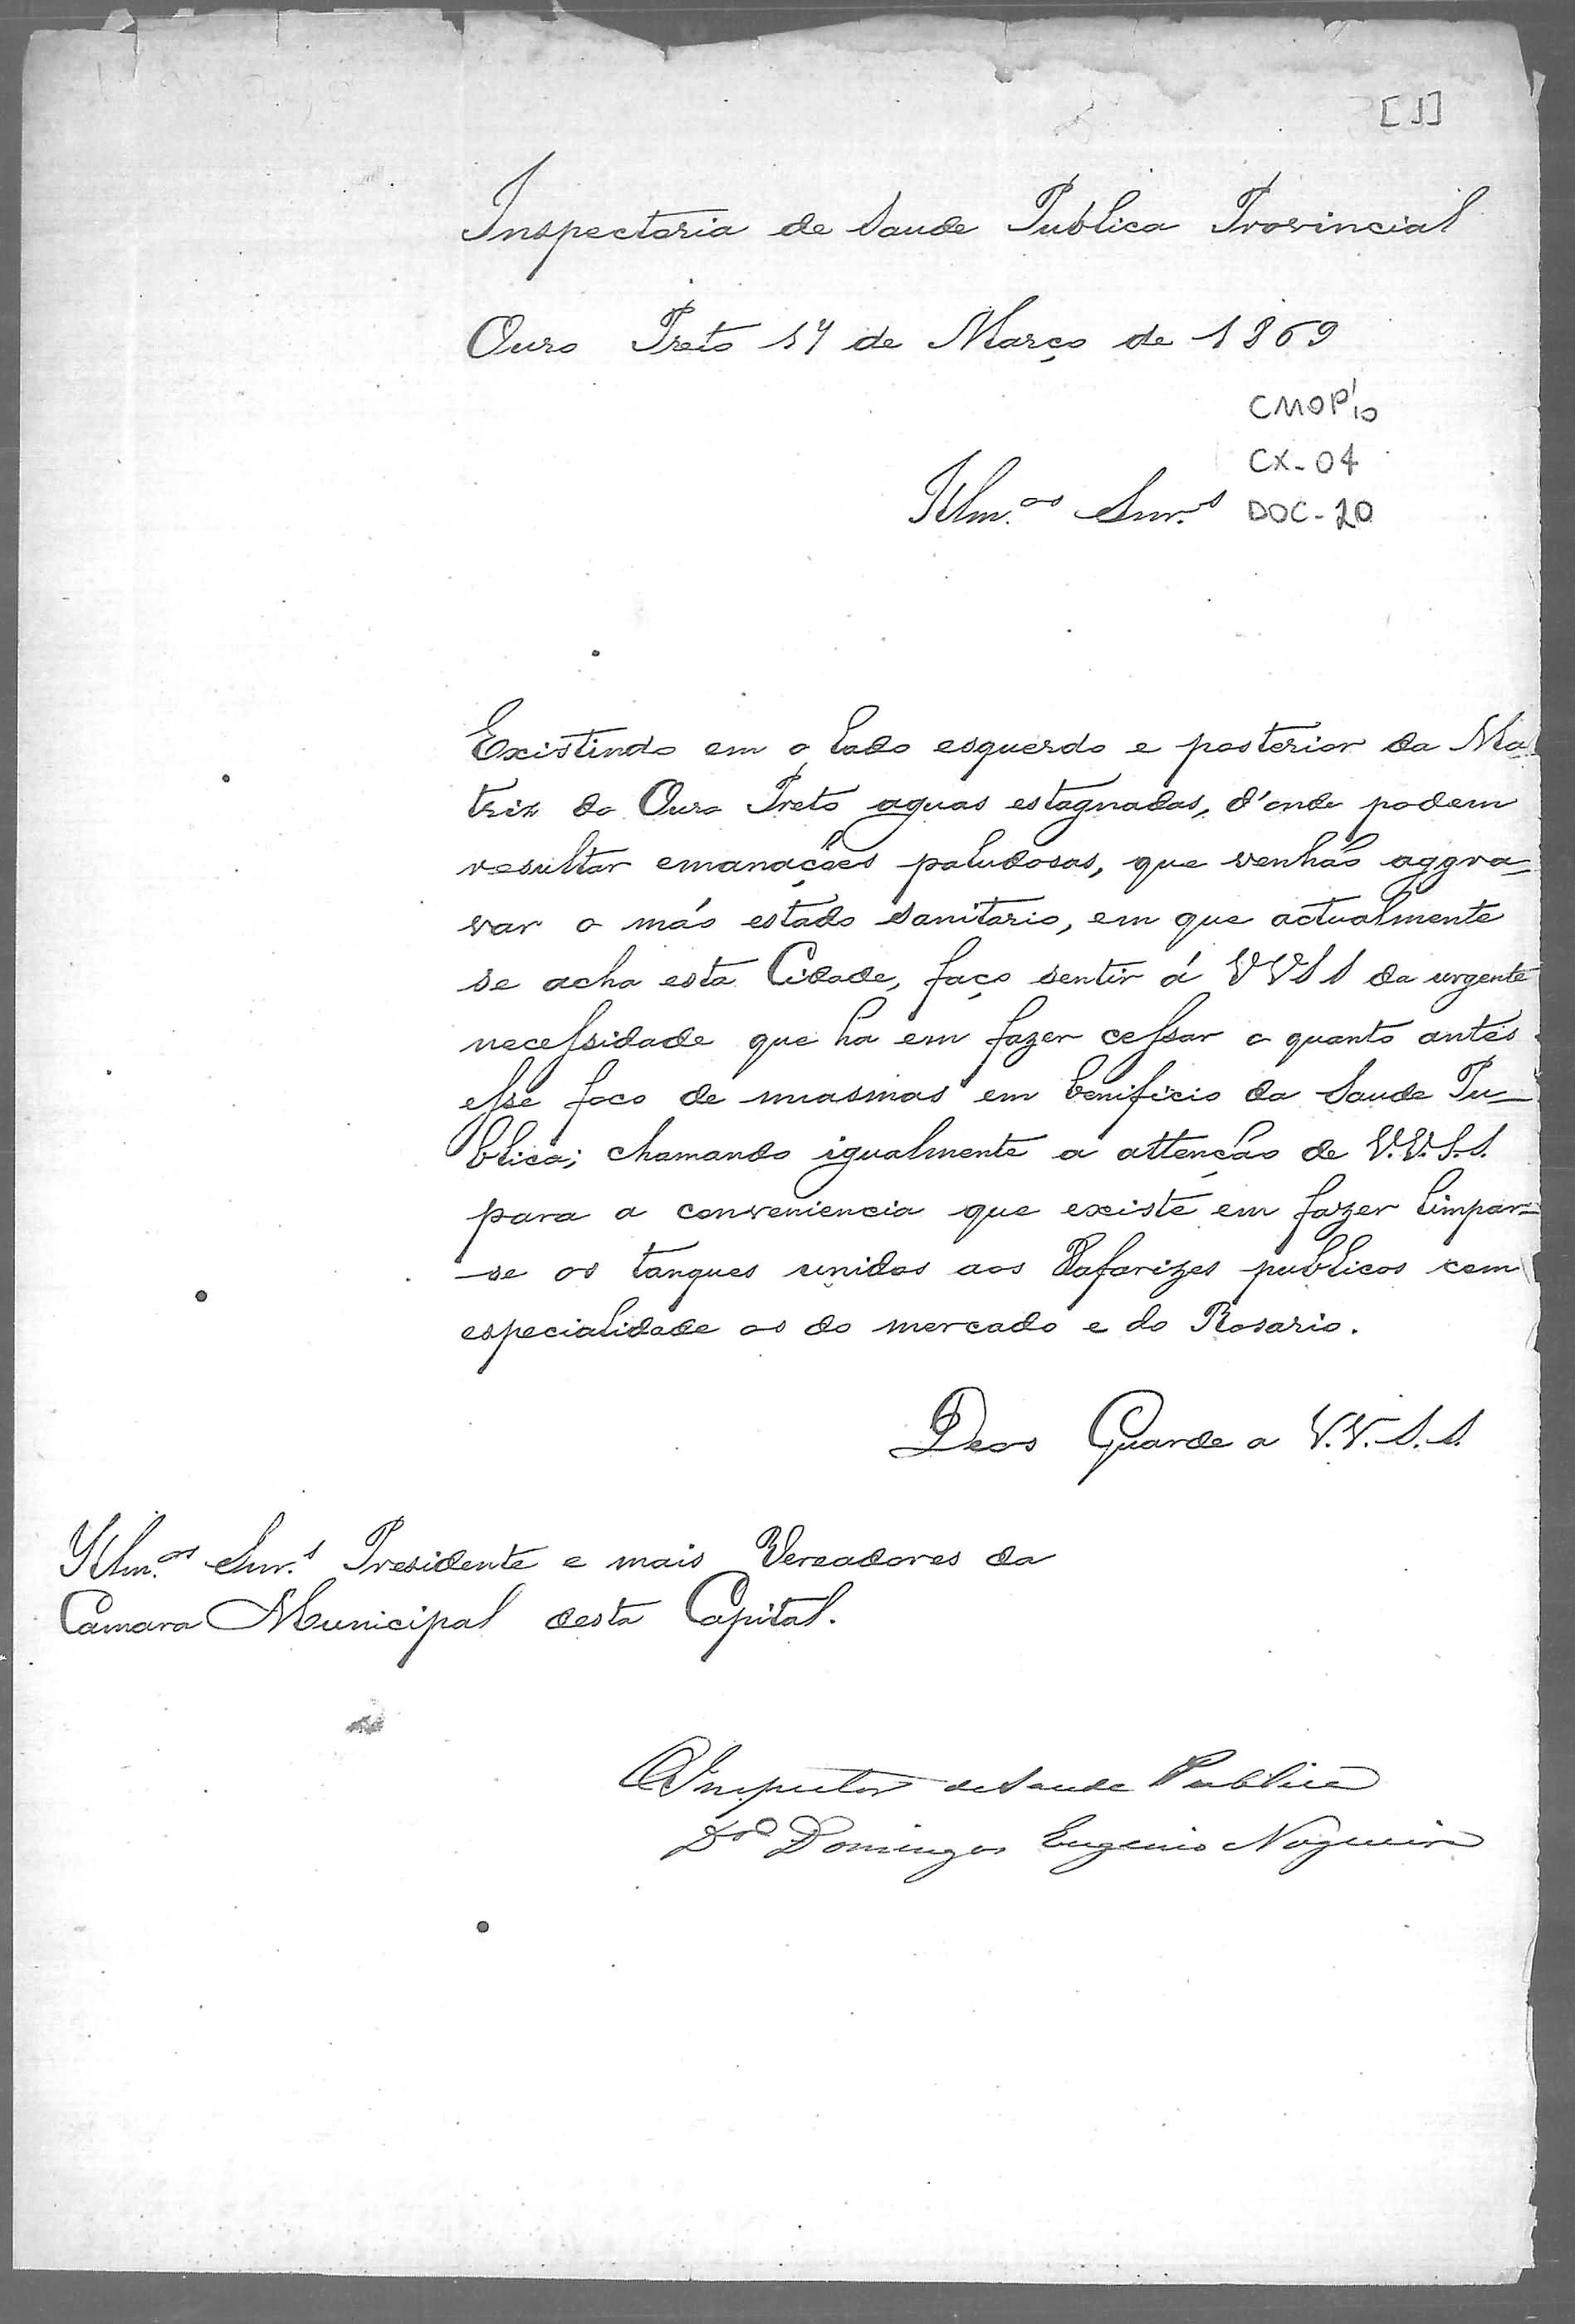 [1]
Inspectoria de Saude Publica Provincial
Ouro Preto 17 de Março de 1869
CMOP'10
CX-04
Illm.os Snr.s DOC-20
Existindo em o lado esquerdo e posterior da Ma-
triz do Ouro Preto aguas estagnadas, d'onde podem
resultar emanações paludosas, que venhão aggra=
var o máo estado sanitario, em que actualmente
se acha esta Cidade, faço sentir á VVSS da urgente
necessidade que ha em fazer cessar o quanto antes
esse foco de miasmas em benificio da Saude Pu-
blica; chamando igualmente a attenção de V.V.S.S.
para a conveniencia que existe em fazer limpar=
-se os tanques unidos aos xafarizes publicos com
especialidade os do mercado e do Rosario.
Deos Guarde a V.V.S.S.
Illm.os Snr.s Presidente e mais Vereadores da
Camara Municipal desta Capital.
O Inspector de Saude Publica
Dor Domingos Eugenio Nogueira